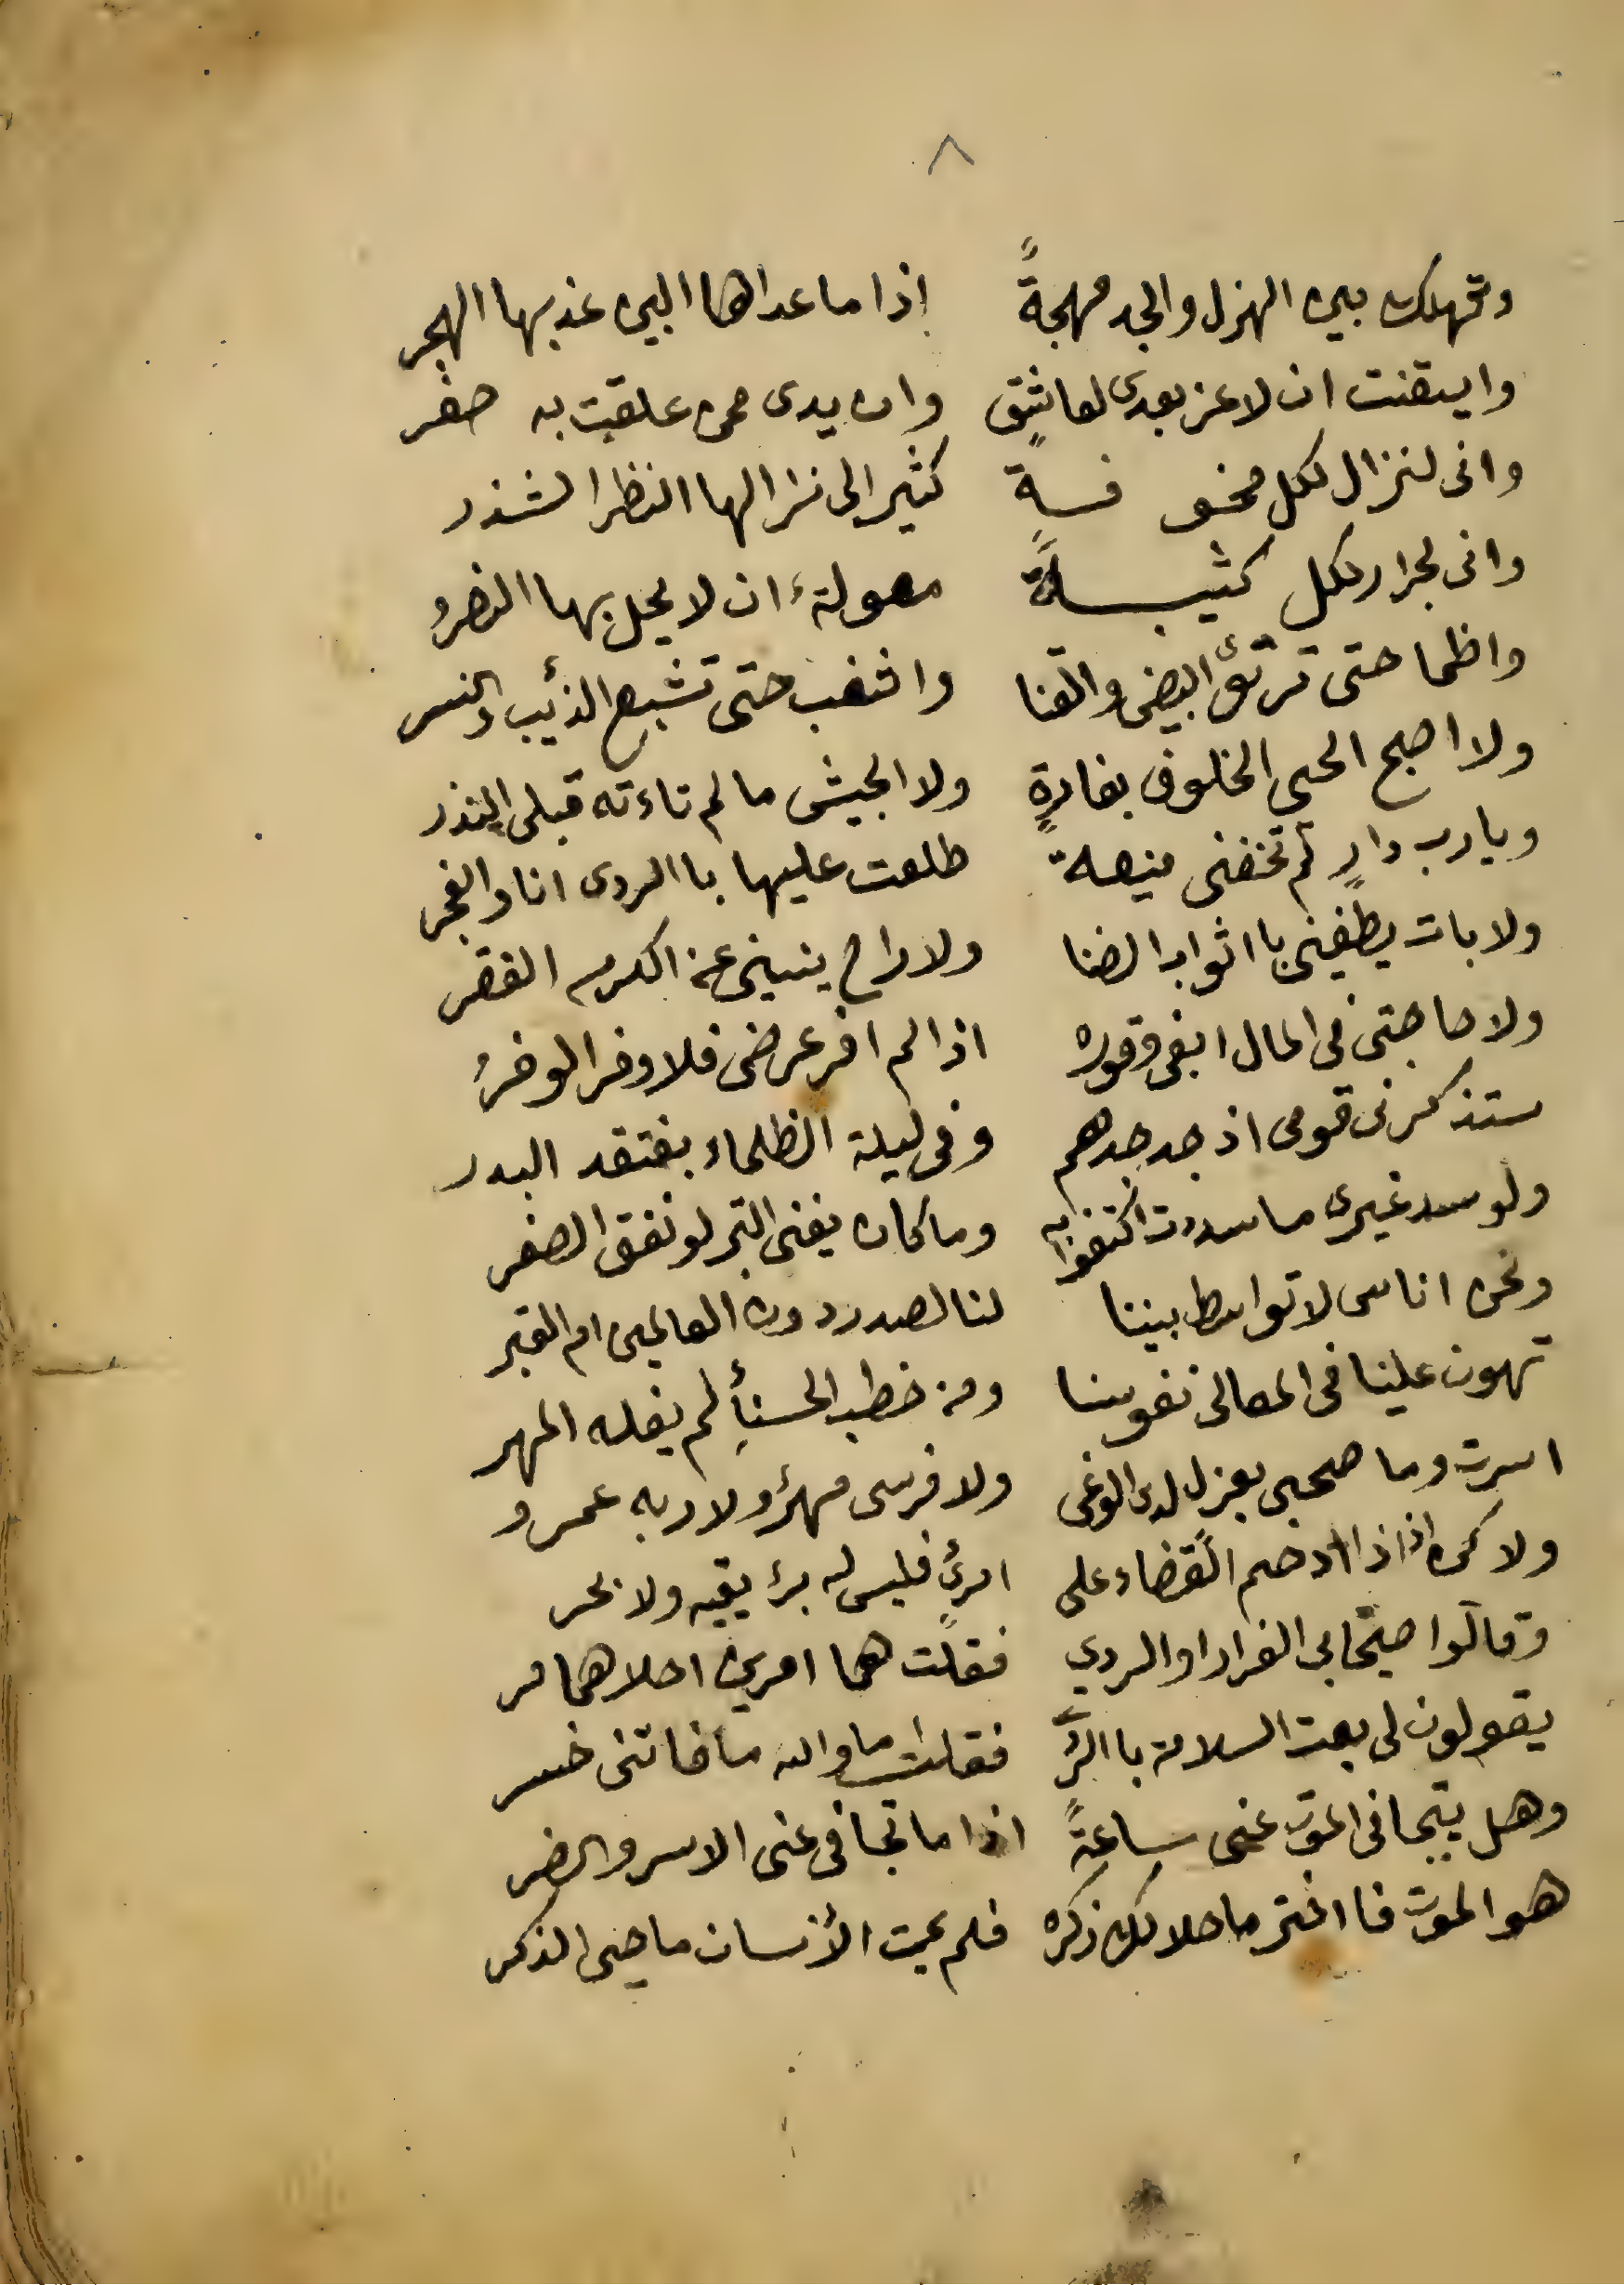 ٨
وتهلك بين الهزل والجد مهجةً إذا ما عداها البين عذبها الهجر
وايقنت ان لاعز بعدى لعاشقٍ وان يدى مما علقت به صفر
وانى لنزال لكل مخوفةٍ كثير الى نزالها النظر الشذر
وانى لجرار لكل كثيبةً معولة ان لا يحل بها النصرُ
واظما حتى ترتوى البيض والقنا واشغب حتى تشبع الذئب والنسر
ولا اصبح الحى الخلوف بغارةٍ ولا الجيش ما لم تاءته قبلى النذر
ويا رب دارٍ لم تخفنى منيعة طلعت عليها باالردى انا والفجر
ولا بات يطغينى بااثوابه الغنا ولا راح يثنينى عن الكرم الفقر
ولا حاجتى فى المال ابغى وفوره اذا لم افر عرضى فلا وفر الوفرُ
ستذكرنى قومى اذ جد جدهم وفى ليلة الظلماء يفتقد البدر
ولو سد غيرى ما سددت اكتفوا به وما كان يغنى التبر لو نفق الصفر
ونحن اناس لا تواسط بيننا لنا لصدر دون العالمين ام القبر
تهون علينا فى المعالى نفوسنا ومن خطب الحسنأِ لم يغله المهر
اسرت وما صحبى بعزل لدى الوغى ولا فرسى مهرٌ ولا ربه عمرو
ولاكن اذا حم القضاء على امرئٍ فليس له برٌ يقيه ولا بحر
وقالوا صيحابى الفرار او الردي فقلت هما امرين احلاهما مر
يقولون لى بعت السلامة باالرَّ فقلت اما والله ما فاتنى خسر
وهل يتجافى الموت عنى ساعةً اذا ما تجافى عنى الاسر والضر
هو الموت فااختر ما حلا لك ذكره فلم يمت الأنسان ما حيى الذكر